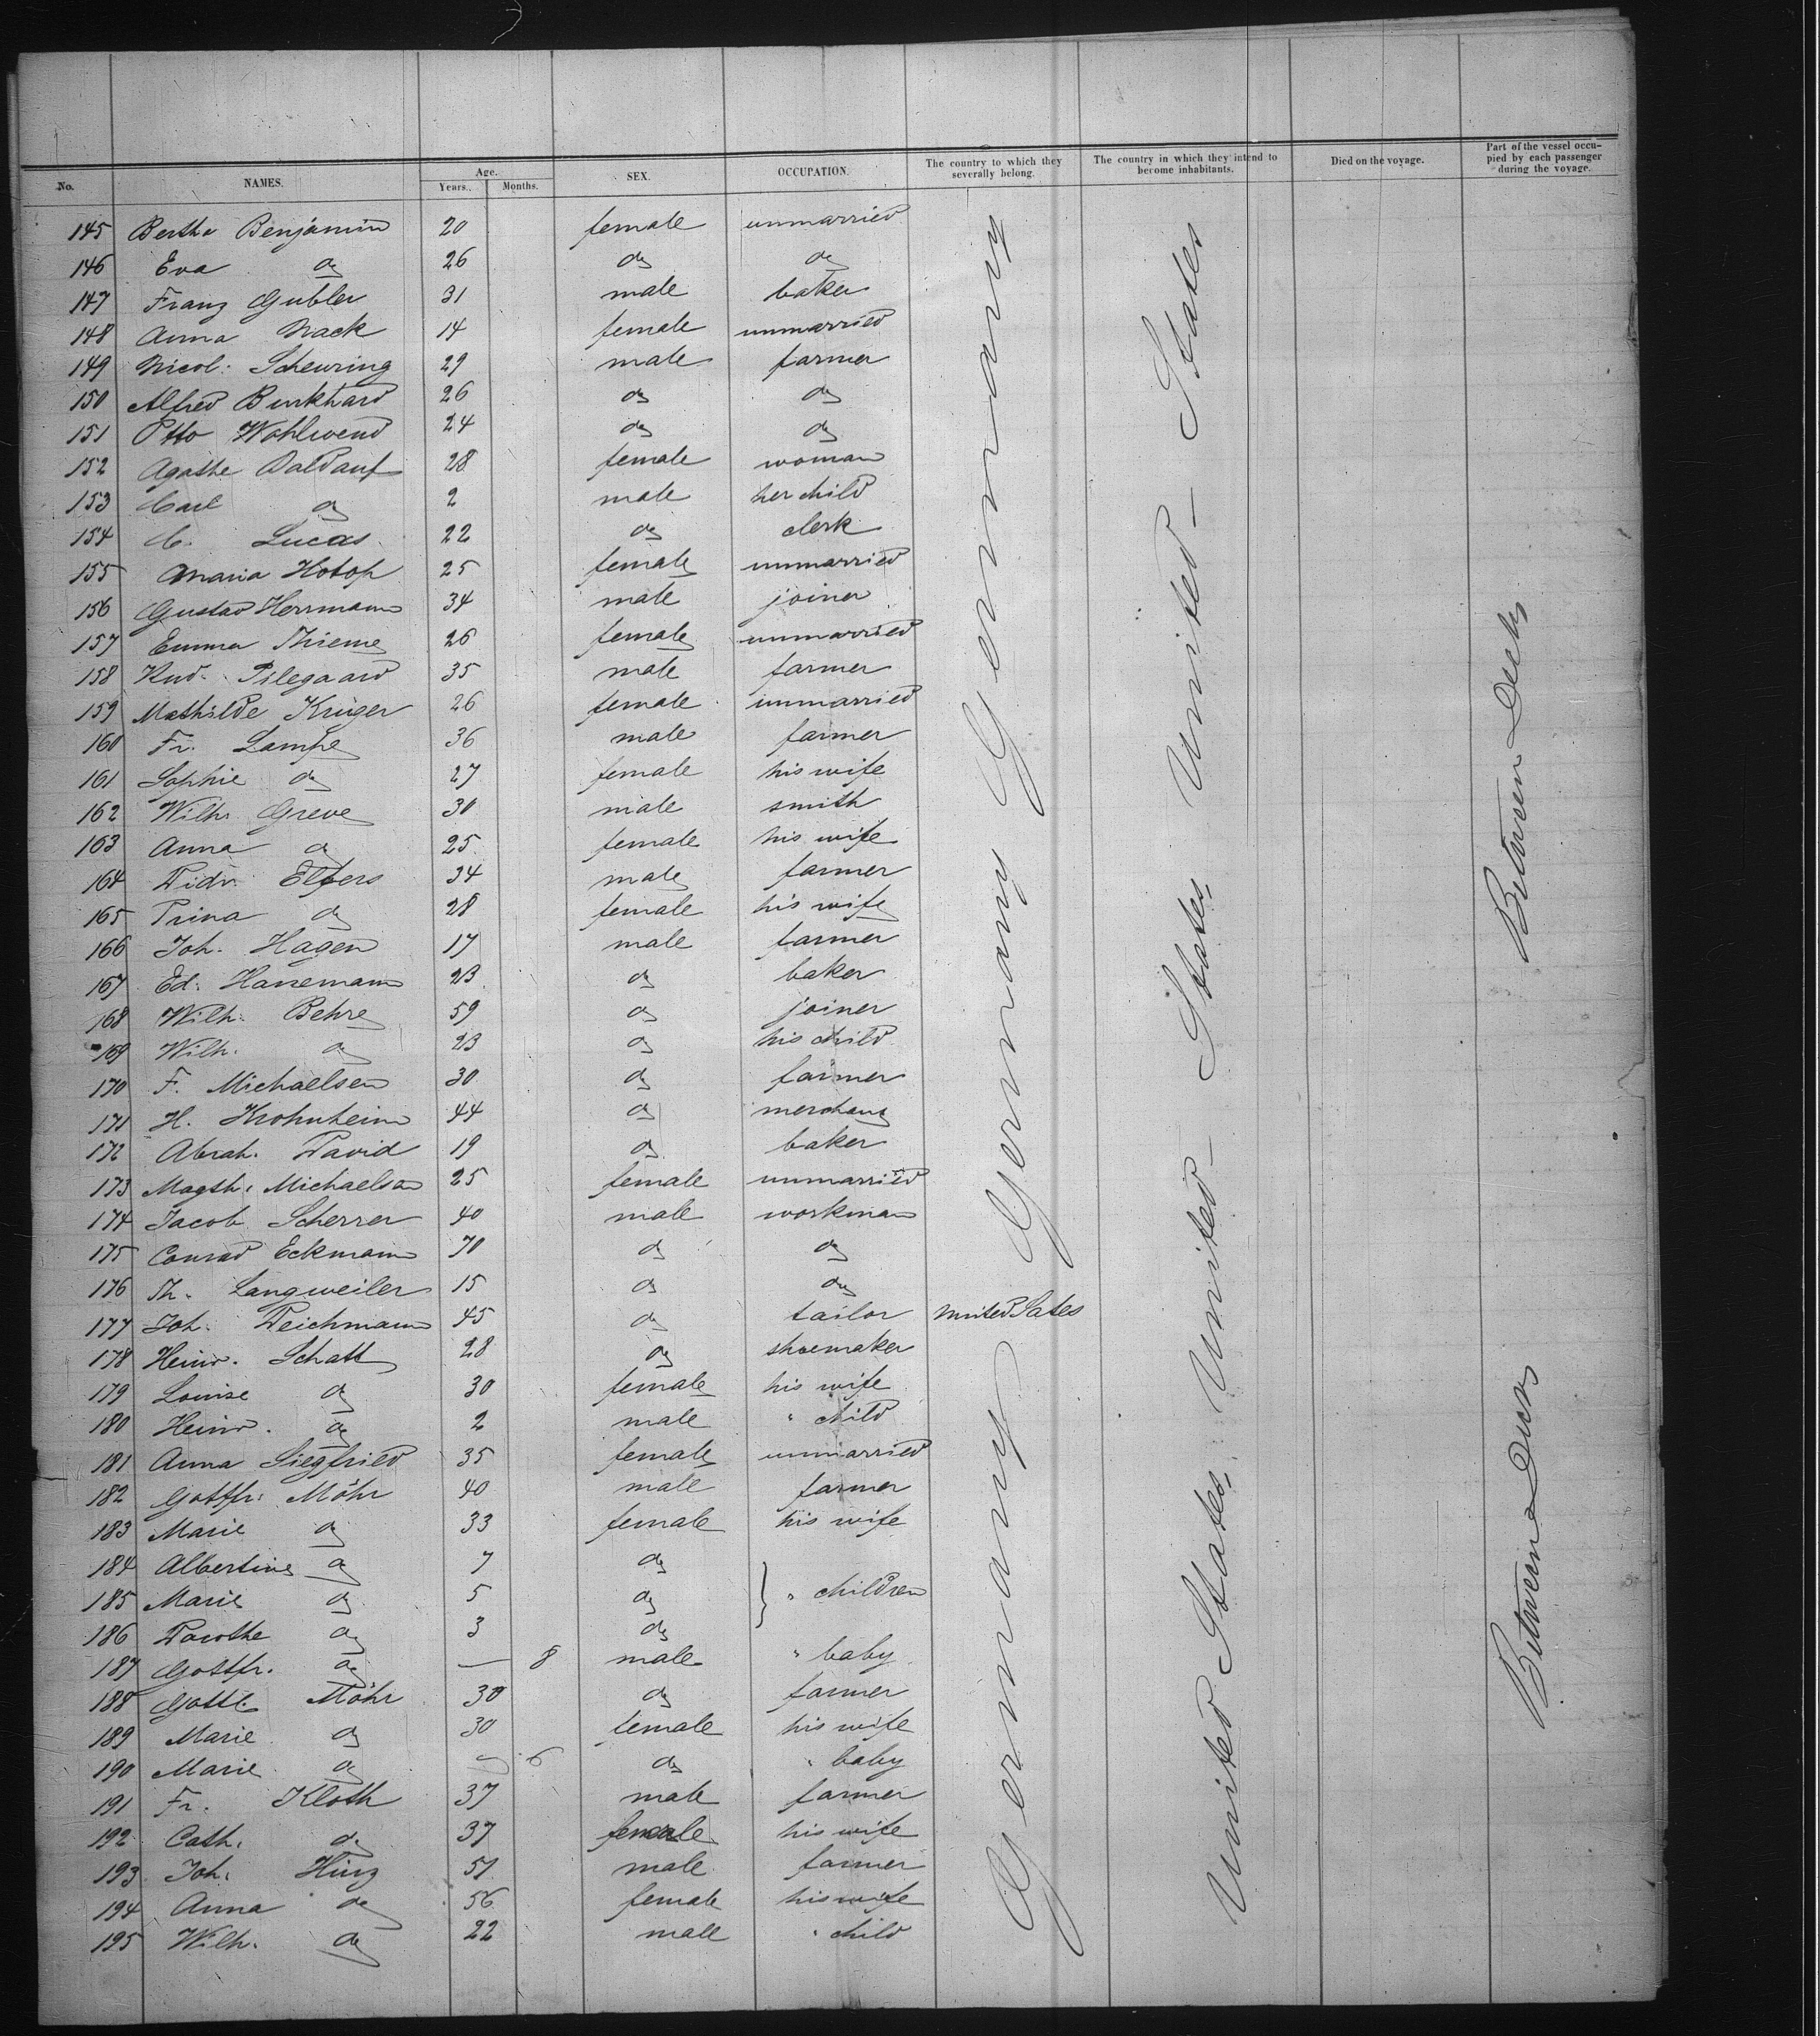 No. NAMES. Age. Years. Months. SEX. OCCUPATION. The country to which they severally belong. The country in which they intend to become inhabitants. Died on the voyage. Part of the vessel occupied by each passenger during the voyage.
145 Bertha Benjamin 20 female unmarried
146 Eva do 26 do do
147 Franz Gubler 31 male baker
148 Anna Nack 14 female unmarried
149 Nicol. Scheuring 29 male farmer
150 Alfred Burkhard 26 do do
151 Otto Wohlwend 24 do do
152 Agathe Baldauf 28 female woman
153 Carl do 2 male her child
154 C. Lucas 22 do clerk
155 Maria Hotop 25 female unmarried
156 Gustav Herrmann 34 male joiner
157 Emma Thieme 26 female unmarried
158 Knd. Pilegaard 35 male farmer
159 Mathilde Krüger 26 female unmarried
160 Fr. Lampe 36 male farmer
161 Sophie do 27 female his wife
162 Wilh. Greve 30 male smith
163 Anna do 25 female his wife
164 Didr. Elfers 34 male farmer
165 Trina do 28 female his wife
166 Joh. Hagen 17 male farmer
167 Ed. Hanemann 23 do baker
168 Wilh. Behre 59 do joiner
169 Wilh. do 23 do his child
170 F. Michaelsen 30 do farmer
171 H. Krohnheim 44 do merchant
172 Abrah. David 19 do baker
173 Magth. Michaelsen 25 female unmarried
174 Jacob Scherrer 40 male workman
175 Conrad Eckmann 70 do do
176 Th. Langweiler 15 do do
177 Joh. Deichmann 45 do tailor United Sates
178 Heinr. Schatt 28 do shoemaker
179 Louise do 30 female his wife
180 Heinr. do 2 male " child
181 Anna Siegfried 35 female unmarried
182 Gottfr. Möhr 40 male farmer
183 Marie do 33 female his wife
184 Albertine do 7 do
185 Marie do 5 do } " children
186 Dorothe do 3 do
187 Gottfr. do — 8 male " baby
188 Gottl. Möhr 30 do farmer
189 Marie do 30 female his wife
190 Marie do — 6 do " baby
191 Fr. Kloth 37 male farmer
192 Cath. do 37 female his wife
193 Joh. Hinz 51 male farmer
194 Anna do 56 female his wife
195 Wilh. do 22 male " child
Germany Germany Germany
United States United States United States
Between Decks Between Decks